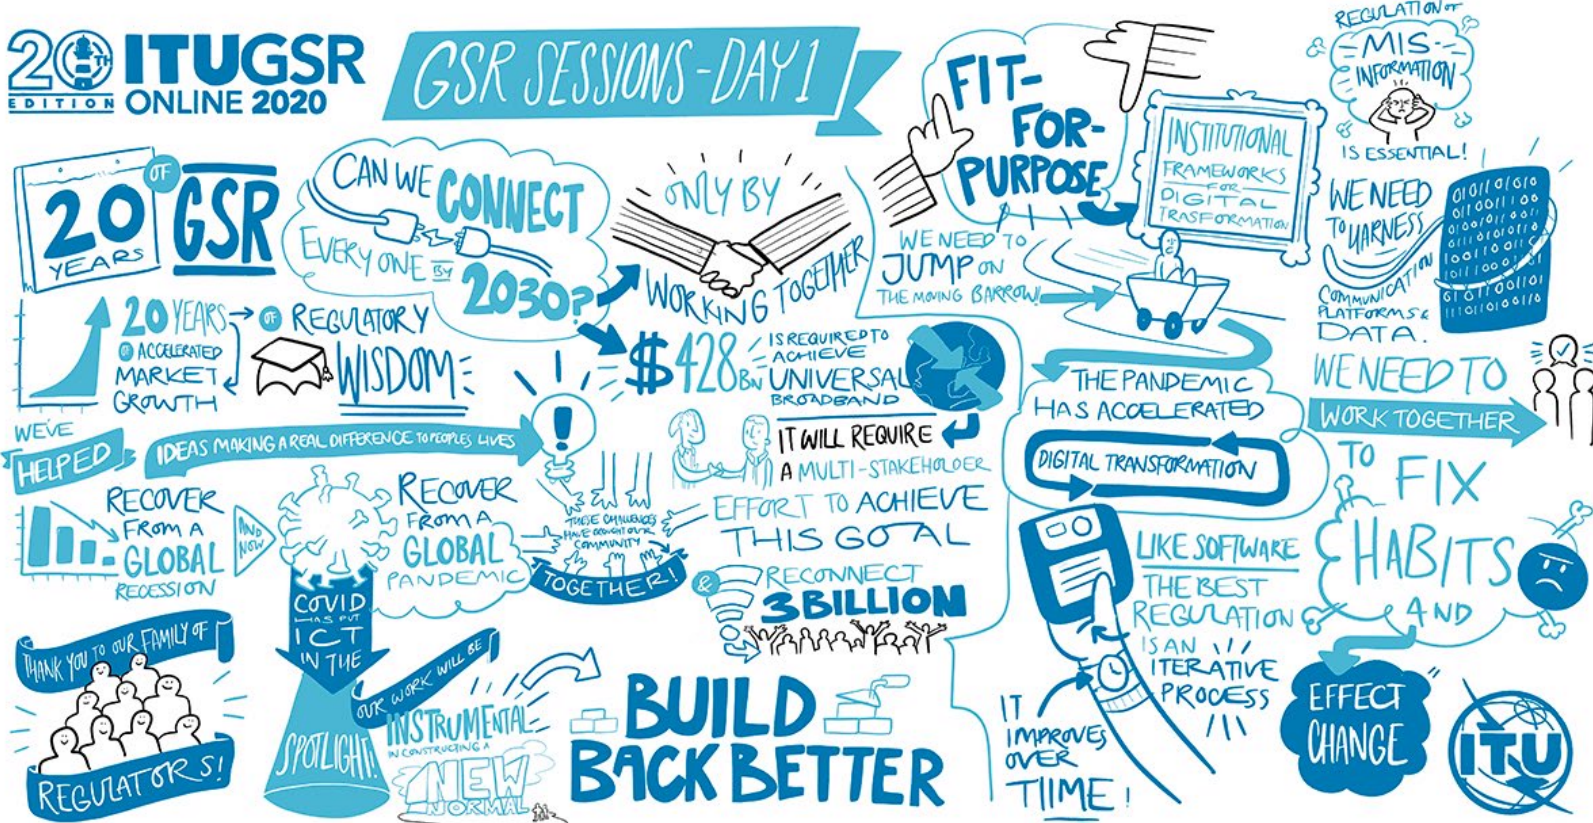 20TH
EDITION
ITUGSR
ONLINE 2020
GSR SESSIONS - DAY 1
20
YEARS
OF
GSR
20 YEARS
OF ACCELERATED
MARKET
GROWTH
OF REGULATORY
WISDOM
CAN WE CONNECT
EVERYONE BY
2030?
ONLY BY
WORKING TOGETHER
$428BN
IS REQUIRED TO
ACHIEVE
UNIVERSAL
BROADBAND
IT WILL REQUIRE
A MULTI-STAKEHOLDER
EFFORT TO ACHIEVE
THIS GOAL
& RECONNECT
3 BILLION
WE'VE
HELPED
IDEAS MAKING A REAL DIFFERENCE TO PEOPLES LIVES
RECOVER
FROM A
GLOBAL
RECESSION
AND
NOW
RECOVER
FROM A
GLOBAL
PANDEMIC
THESE CHALLENGES
HAVE BROUGHT OUR
COMMUNITY
TOGETHER!
THANK YOU TO OUR FAMILY OF
REGULATORS!
COVID
HAS PUT
ICT
IN THE
SPOTLIGHT!
OUR WORK WILL BE
INSTRUMENTAL
IN CONSTRUCTING A
NEW
NORMAL
BUILD
BACK BETTER
FIT-
FOR-
PURPOSE
INSTITUTIONAL
FRAMEWORKS
FOR
DIGITAL
TRASFORMATION
WE NEED TO
JUMP ON
THE MOVING BARROW!
THE PANDEMIC
HAS ACCELERATED
DIGITAL TRANSFORMATION
LIKE SOFTWARE
THE BEST
REGULATION
IS AN
ITERATIVE
PROCESS
IT
IMPROVES
OVER
TIIME!
REGULATION OF
MIS-
INFORMATION
IS ESSENTIAL!
WE NEED
TO HARNESS
COMMUNICATION
PLATFORMS &
DATA.
WE NEED TO
WORK TOGETHER
TO FIX
HABITS
AND
EFFECT
CHANGE
ITU